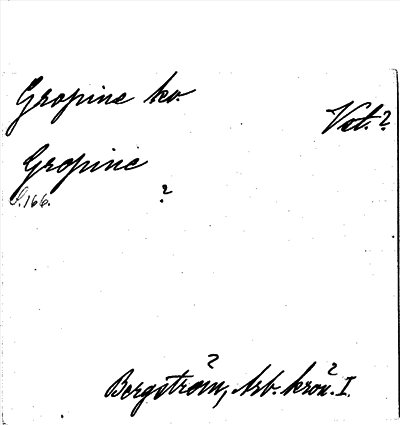 Gropine kv.
Vst.?
Gropine
S. 166.
?
Bergström, Arb. krön. I.